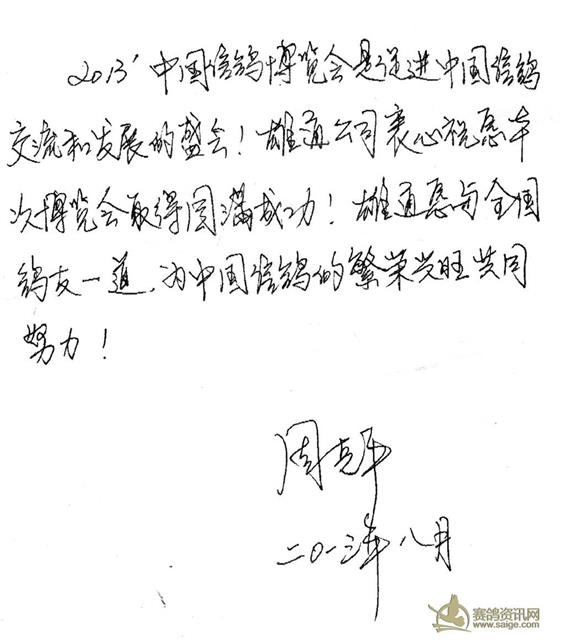 2013'中国信鸽博览会是促进中国信鸽
交流和发展的盛会！雄通公司衷心祝愿本
次博览会取得圆满成功！雄通愿与全国
鸽友一道，为中国信鸽的繁荣兴旺共同
努力！
周
二〇一三年八月
赛鸽资讯网
www.saige.com